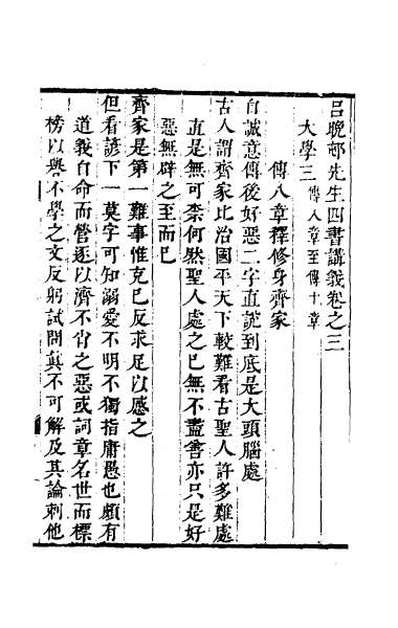 呂晚邨先生四書講義卷之三
大學三 傳八章至傳十章
傳八章釋修身齊家
自誠意傳後好惡二字直說到底是大頭腦處
古人謂齊家比治國平天下較難看古聖人許多難處
直是無可柰何然聖人處之已無不盡善亦只是好
惡無辟之至而已
齊家是第一難事惟克己反求足以感之
但看諺下一莫字可知溺愛不明不獨指庸愚也頗有
道義自命而營逐以濟不肖之惡或詞章名世而標
榜以與不學之文反躬試問眞不可解及其論刺他